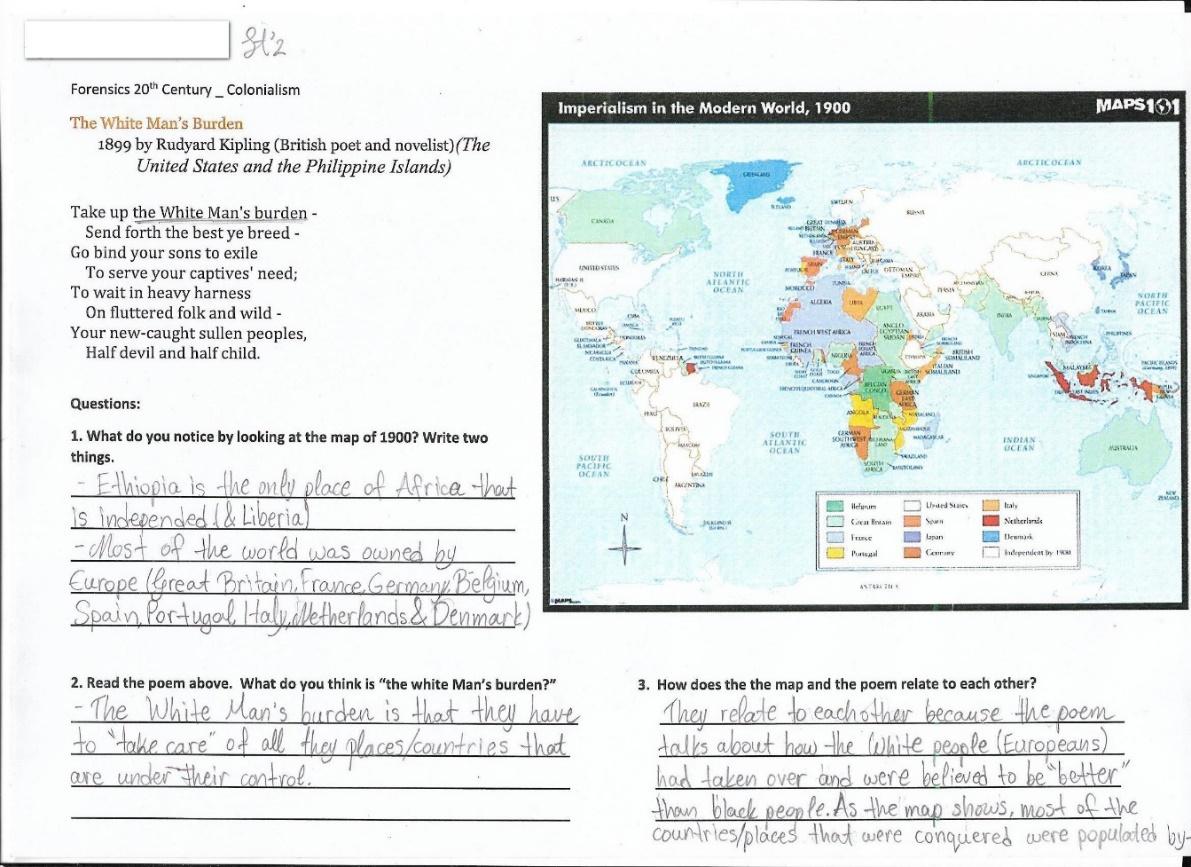 Forensics 20th Century _ Colonialism
The White Man's Burden
1899 by Rudyard Kipling (British poet and novelist)(The
United States and the Philippine Islands)
Take up the White Man's burden -
Send forth the best ye breed -
Go bind your sons to exile
To serve your captives' need;
To wait in heavy harness
On fluttered folk and wild -
Your new-caught sullen peoples,
Half devil and half child.
Questions:
1. What do you notice by looking at the map of 1900? Write two
things.
- Ethiopia is the only place of Africa that
is independed (& Liberia)
- Most of the world was owned by
Europe (Great Britain, France, Germany, Belgium,
Spain, Portugal, Italy, Netherlands & Denmark)
2. Read the poem above. What do you think is "the white Man's burden?"
- The White Man's burden is that they have
to "take care" of all they places/countries that
are under their control.
3. How does the the map and the poem relate to each other?
They relate to eachother because the poem
talks about how the White people (Europeans)
had taken over and were believed to be "better"
than black people. As the map shows, most of the
countries/places that were conquered were populated by-
Imperialism in the Modern World, 1900
MAPS101
ARCTIC OCEAN
ARCTIC OCEAN
GREENLAND
ICELAND
SWEDEN
RUSSIA
CANADA
GREAT BRITAIN
GERMAN EMPIRE
FRANCE
SPAIN
ITALY
OTTOMAN EMPIRE
UNITED STATES
NORTH ATLANTIC OCEAN
MOROCCO
TUNISIA
ALGERIA
LIBYA
EGYPT
PERSIA
ARABIA
CHINA
KOREA
JAPAN
NORTH PACIFIC OCEAN
INDIA
SIAM
PHILIPPINES
MEXICO
CUBA
VENEZUELA
COLOMBIA
FRENCH WEST AFRICA
ANGLO EGYPTIAN SUDAN
NIGERIA
BRITISH SOMALILAND
ITALIAN SOMALILAND
BELGIAN CONGO
GERMAN EAST AFRICA
ANGOLA
GERMAN SOUTHWEST AFRICA
MADAGASCAR
SOUTH AFRICA
SWAZILAND
BASUTOLAND
MALAYSIA
PERU
BRAZIL
BOLIVIA
CHILE
ARGENTINA
SOUTH PACIFIC OCEAN
SOUTH ATLANTIC OCEAN
INDIAN OCEAN
AUSTRALIA
NEW ZEALAND
N
Belgium
Great Britain
France
Portugal
United States
Spain
Japan
Germany
Italy
Netherlands
Denmark
Independent by 1900
ANTARCTICA